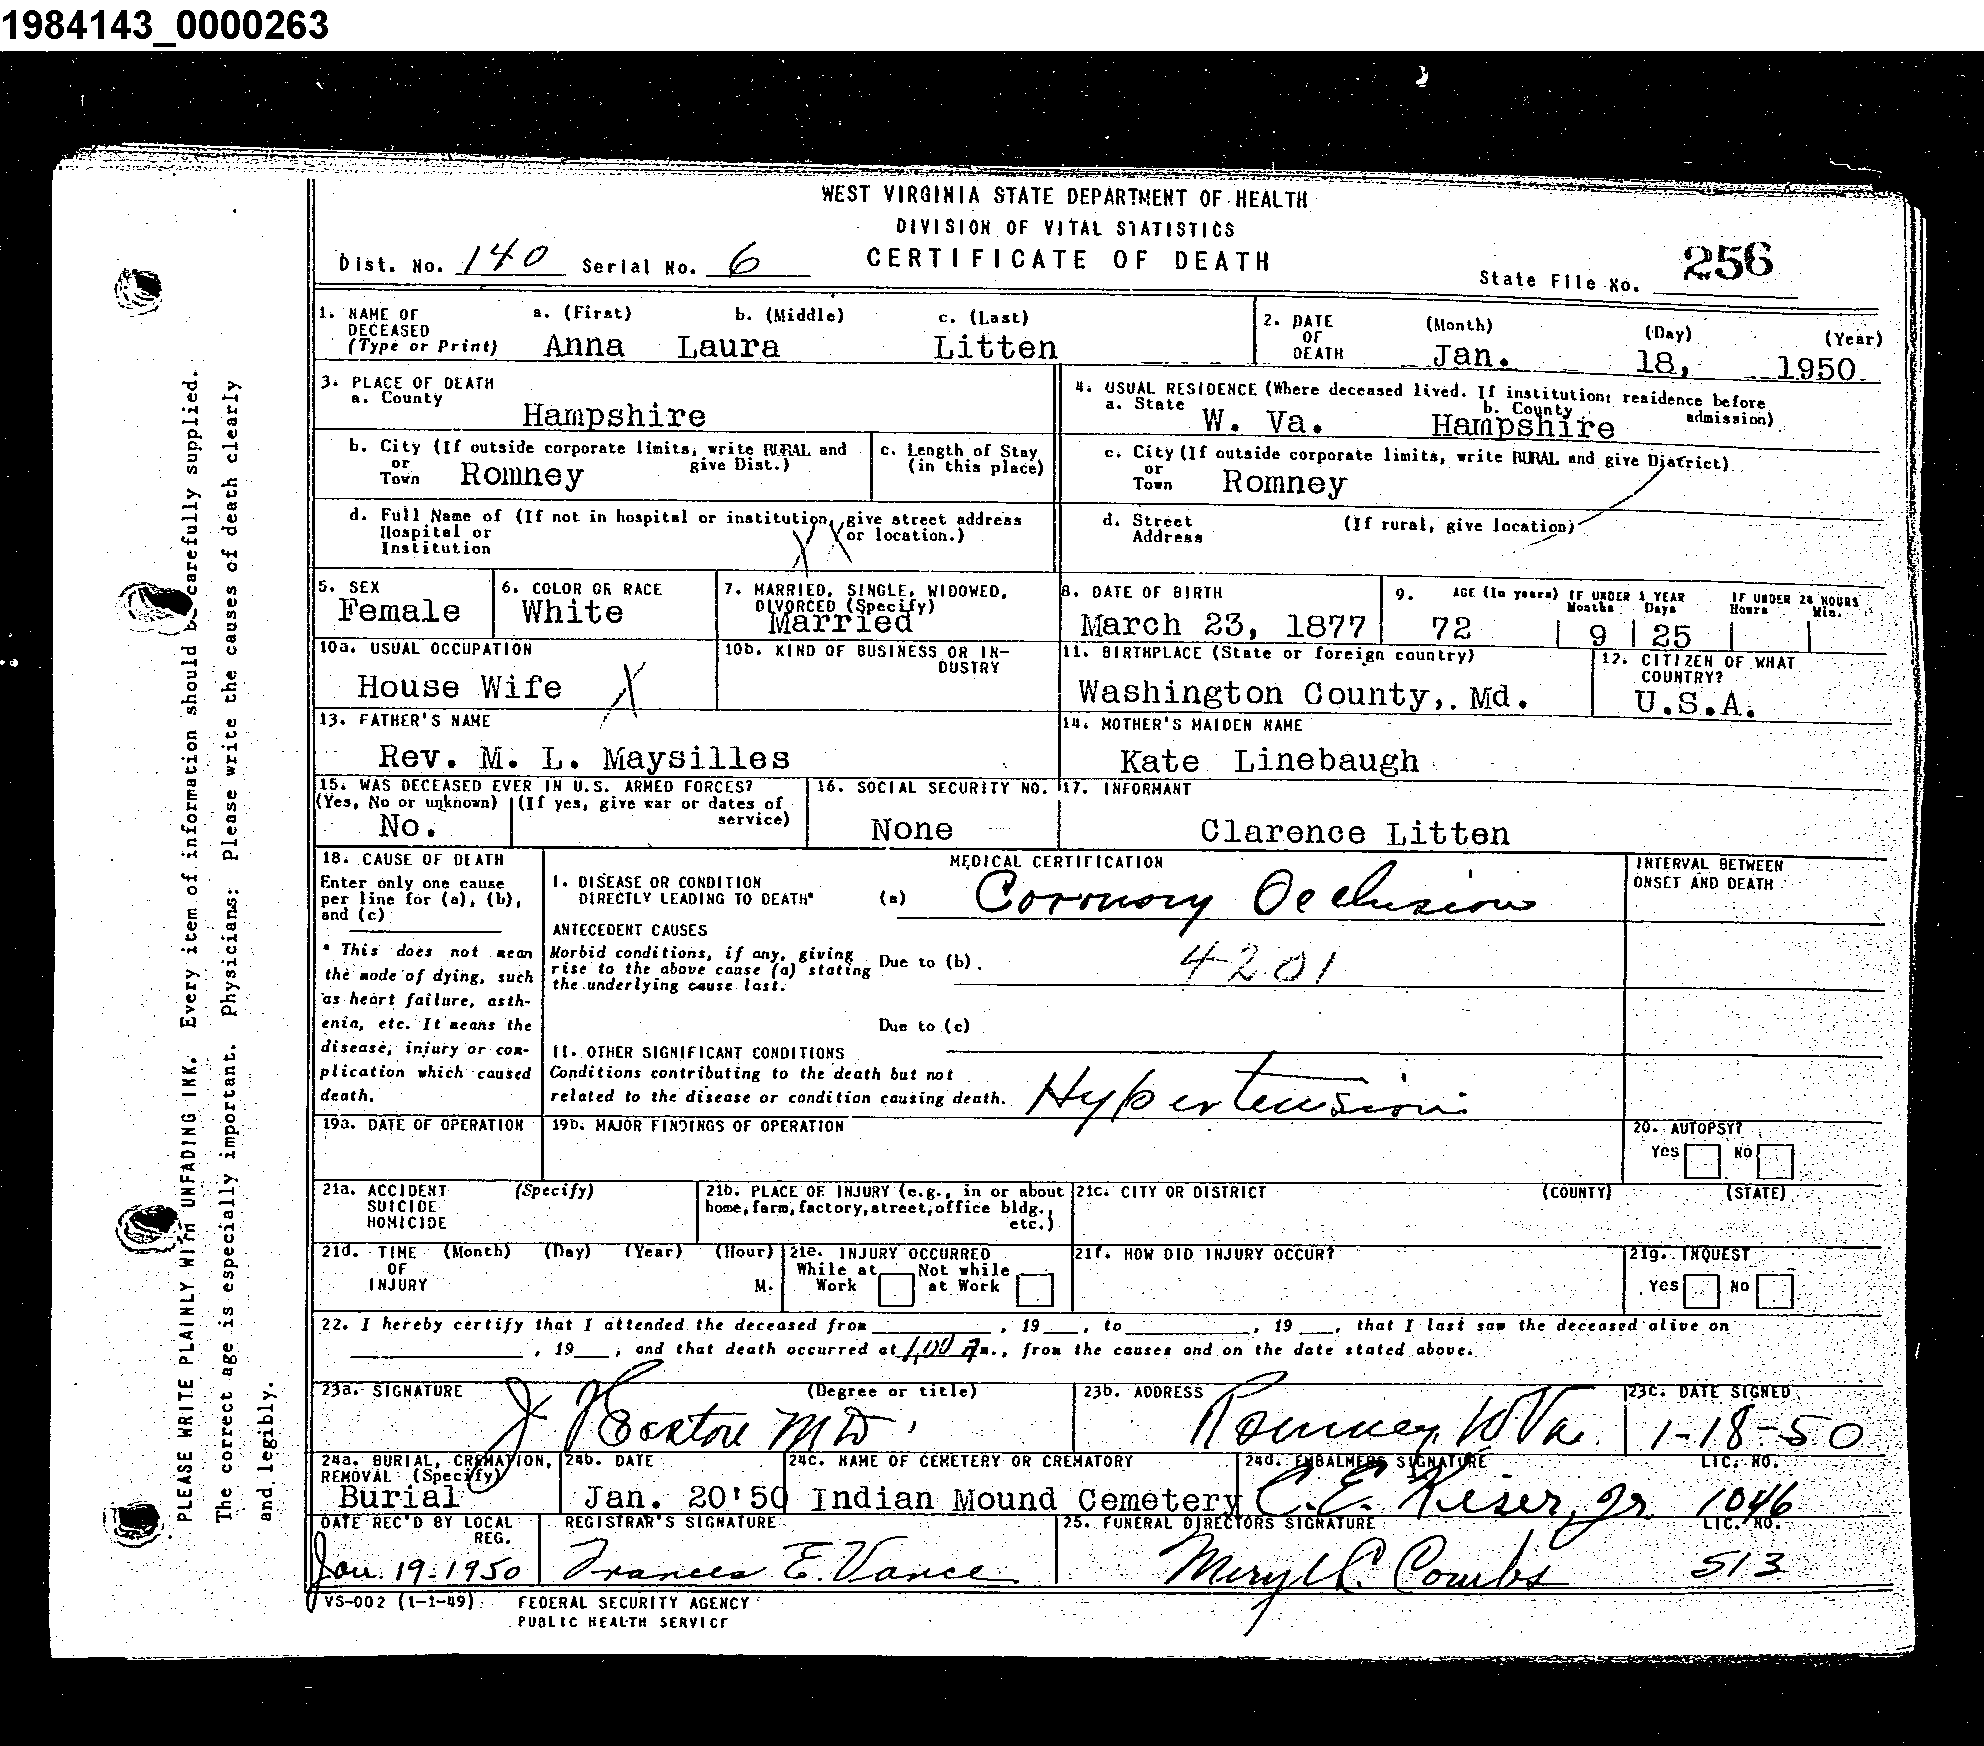 1984143_0000263
WEST VIRGINIA STATE DEPARTMENT OF HEALTH
DIVISION OF VITAL STATISTICS
Dist. No. 140 Serial No. 6 CERTIFICATE OF DEATH State File No. 256
1. NAME OF DECEASED (Type or Print) a. (First) b. (Middle) c. (Last)
Anna Laura Litten
2. DATE OF DEATH (Month) (Day) (Year)
Jan. 18, 1950
3. PLACE OF DEATH
a. County
Hampshire
4. USUAL RESIDENCE (Where deceased lived. If institution: residence before admission)
a. State W. Va. b. County Hampshire
b. City (If outside corporate limits, write RURAL and give Dist.)
or Town Romney
c. Length of Stay (in this place)
c. City (If outside corporate limits, write RURAL and give District)
or Town Romney
d. Full Name of (If not in hospital or institution, give street address or location.)
Hospital or Institution
X X
d. Street Address (If rural, give location)
5. SEX
Female
6. COLOR OR RACE
White
7. MARRIED, SINGLE, WIDOWED, DIVORCED (Specify)
Married
8. DATE OF BIRTH
March 23, 1877
9. AGE (In years) IF UNDER 1 YEAR Months Days IF UNDER 24 HOURS Hours Min.
72 9 25
10a. USUAL OCCUPATION
House Wife X
10b. KIND OF BUSINESS OR INDUSTRY
11. BIRTHPLACE (State or foreign country)
Washington County, Md.
12. CITIZEN OF WHAT COUNTRY?
U.S.A.
13. FATHER'S NAME
Rev. M. L. Maysilles
14. MOTHER'S MAIDEN NAME
Kate Linebaugh
15. WAS DECEASED EVER IN U.S. ARMED FORCES?
(Yes, No or unknown) (If yes, give war or dates of service)
No.
16. SOCIAL SECURITY NO.
None
17. INFORMANT
Clarence Litten
18. CAUSE OF DEATH
Enter only one cause per line for (a), (b), and (c)
* This does not mean the mode of dying, such as heart failure, asthenia, etc. It means the disease, injury or complication which caused death.
MEDICAL CERTIFICATION
INTERVAL BETWEEN ONSET AND DEATH
I. DISEASE OR CONDITION DIRECTLY LEADING TO DEATH* (a) Coronory Occlusion
ANTECEDENT CAUSES
Morbid conditions, if any, giving rise to the above cause (a) stating the underlying cause last.
Due to (b) 4201
Due to (c)
II. OTHER SIGNIFICANT CONDITIONS
Conditions contributing to the death but not related to the disease or condition causing death. Hypertension
19a. DATE OF OPERATION
19b. MAJOR FINDINGS OF OPERATION
20. AUTOPSY?
Yes No
21a. ACCIDENT SUICIDE HOMICIDE (Specify)
21b. PLACE OF INJURY (e.g., in or about home, farm, factory, street, office bldg., etc.)
21c. CITY OR DISTRICT (COUNTY) (STATE)
21d. TIME OF INJURY (Month) (Day) (Year) (Hour) M.
21e. INJURY OCCURRED
While at Work Not while at Work
21f. HOW DID INJURY OCCUR?
21g. INQUEST
Yes No
22. I hereby certify that I attended the deceased from , 19 , to , 19 , that I last saw the deceased alive on
, 19 , and that death occurred at 1:00 A m., from the causes and on the date stated above.
23a. SIGNATURE (Degree or title)
MD
23b. ADDRESS
Romney, W Va.
23c. DATE SIGNED
1-18-50
24a. BURIAL, CREMATION, REMOVAL (Specify)
Burial
24b. DATE
Jan. 20'50
24c. NAME OF CEMETERY OR CREMATORY
Indian Mound Cemetery
24d. EMBALMERS SIGNATURE LIC. NO.
C. E. Kiser, Jr. 1046
DATE REC'D BY LOCAL REG.
Jan. 19-1950
REGISTRAR'S SIGNATURE
Frances E. Vance
25. FUNERAL DIRECTORS SIGNATURE LIC. NO.
Meryl C. Combs 513
VS-002 (1-1-49) FEDERAL SECURITY AGENCY
PUBLIC HEALTH SERVICE
PLEASE WRITE PLAINLY WITH UNFADING INK. Every item of information should be carefully supplied.
The correct age is especially important. Physicians: Please write the causes of death clearly
and legibly.